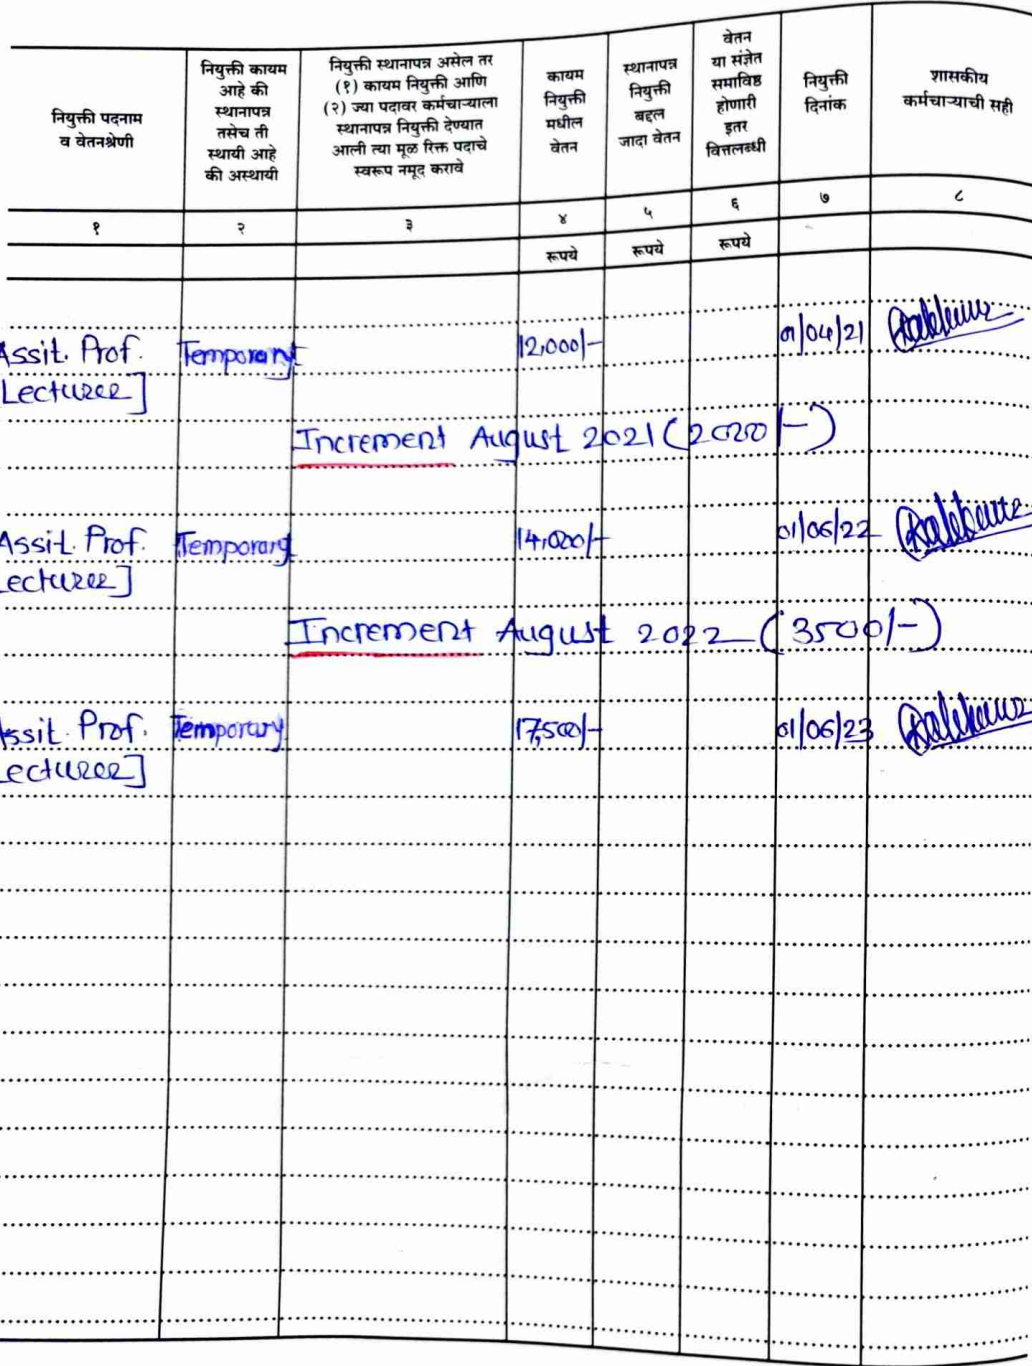 नियुक्ती पदनाम
व वेतनश्रेणी
नियुक्ती कायम
आहे की
स्थानापन्न
तसेच ती
स्थायी आहे
की अस्थायी
नियुक्ती स्थानापन्न असेल तर
(१) कायम नियुक्ती आणि
(२) ज्या पदावर कर्मचाऱ्याला
स्थानापन्न नियुक्ती देण्यात
आली त्या मूळ रिक्त पदाचे
स्वरूप नमूद करावे
कायम
नियुक्ती
मधील
वेतन
स्थानापन्न
नियुक्ती
बद्दल
जादा वेतन
वेतन
या संज्ञेत
समाविष्ठ
होणारी
इतर
वित्तलब्धी
नियुक्ती
दिनांक
शासकीय
कर्मचाऱ्याची सही
१ २ ३ ४ ५ ६ ७ ८
रूपये रूपये रूपये
Assit. Prof. Temporary 12,000/- 01/04/21
Lecturer]
Increment August 2021 (2000/-)
Assit. Prof. Temporary 14,000/- 01/06/22
ecturer]
Increment August 2022 (3500/-)
ssit. Prof. Temporary 17,500/- 01/06/23
ecturer]